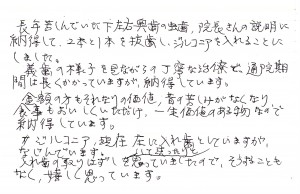 長年苦しんでいた下左右奥歯の虫歯、院長さんの説明に
納得して、2本と1本を抜歯し、ジルコニアを入れることに
しました。
義歯の様子を見ながらの丁寧な治療で、通院期
間は長くかかっていますが、納得しています。
金額の方もそれなりの価値、歯の苦しみがなくなり
食事もおいしくいただけ、一生価値のある物なので
納得しています。
ジルコニア、現在左に入れ歯としていますが、
なじんでいます。
入れ歯の取りはずしを思っていましたので、そういうことも
なく、嬉しく思っています。